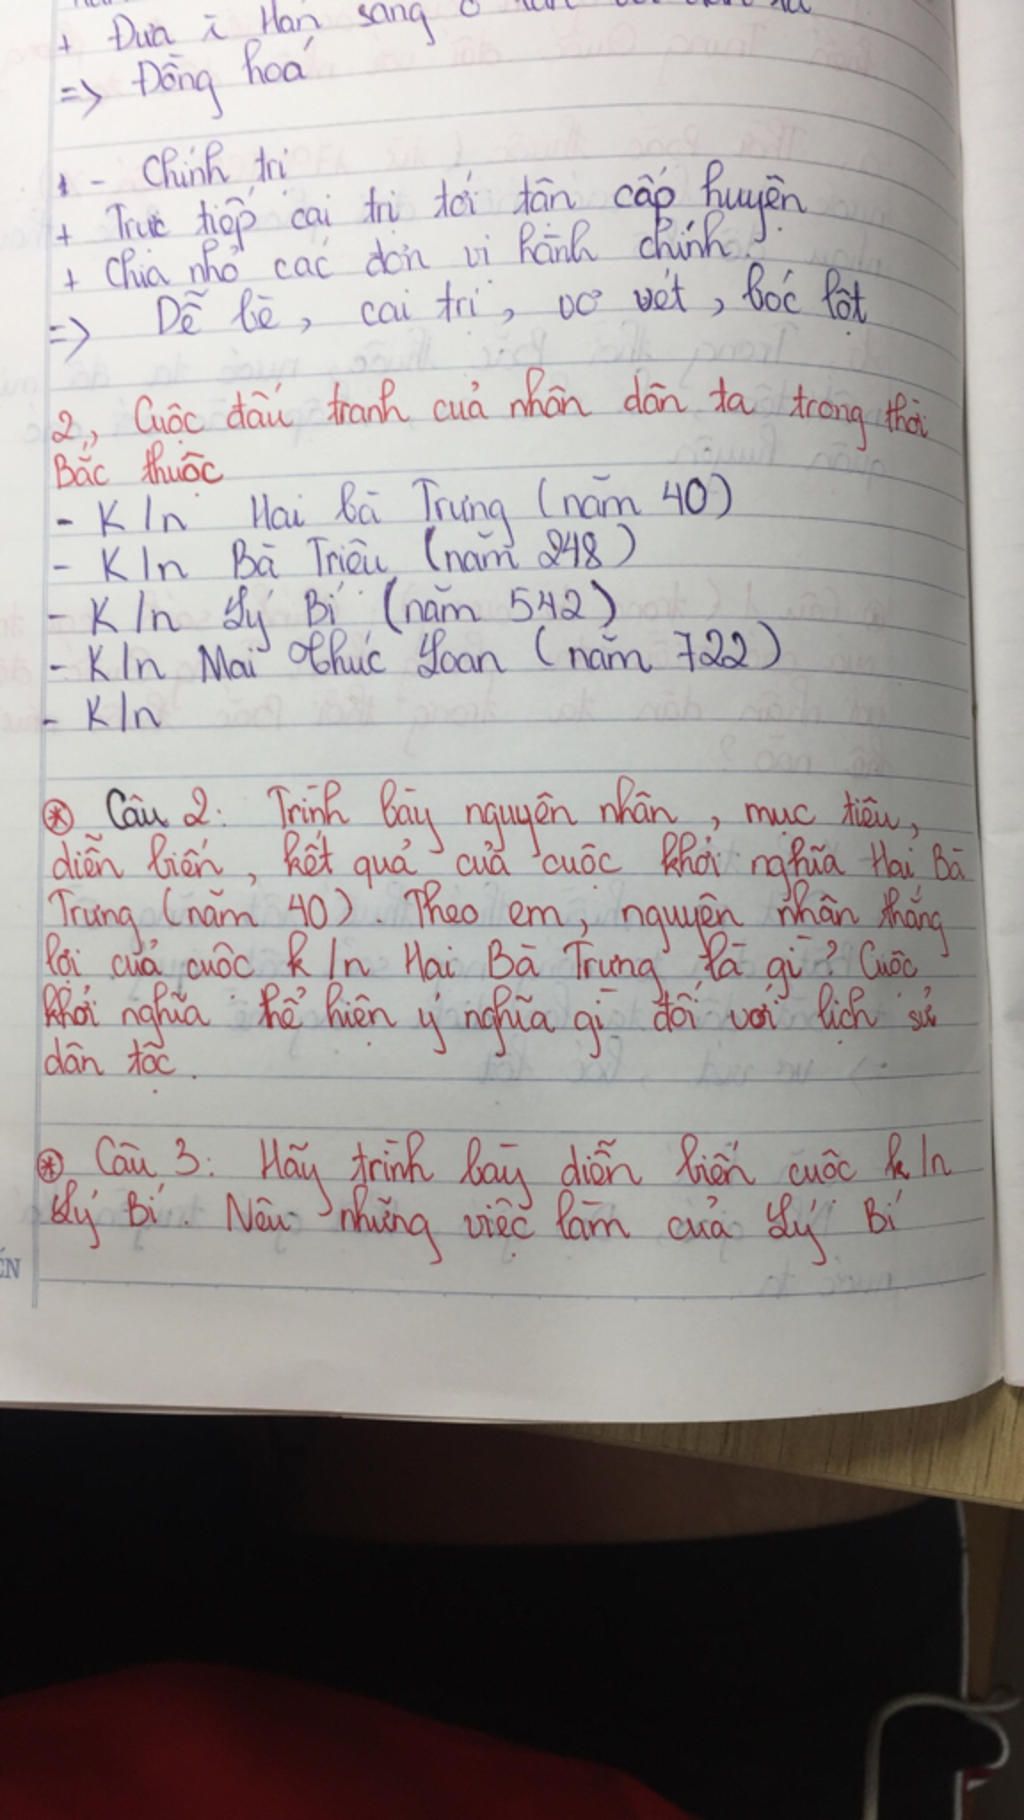 + Đưa ĩ Hán sang ở
=> Đồng hoá
+ - Chính trị
+ Trực tiếp cai trị tới tận cấp huyện
+ Chia nhỏ các đơn vị hành chính.
=> Dễ bề, cai trị, vơ vét, bóc lột
2., Cuộc đấu tranh của nhân dân ta trong thời
Bắc thuộc
- K/n Hai bà Trưng (năm 40)
- K/n Bà Triệu (năm 248)
- K/n Lý Bí (năm 542)
- K/n Mai Thúc Loan (năm 722)
- K/n
* Câu 2: Trình bày nguyên nhân, mục tiêu,
diễn biến, kết quả của cuộc khởi nghĩa Hai Bà
Trưng (năm 40). Theo em, nguyên nhân thắng
lợi của cuộc k/n Hai Bà Trưng là gì? Cuộc
khởi nghĩa thể hiện ý nghĩa gì đối với lịch sử
dân tộc.
* Câu 3: Hãy trình bày diễn biến cuộc k/n
Lý Bí. Nêu những việc làm của Lý Bí
ẾN